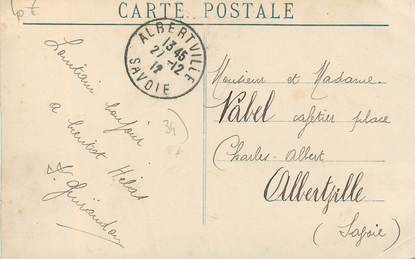 CARTE POSTALE
ALBERTVILLE
13 45
27 -12
12
SAVOIE
Lointain bonjour
a bientot Hélas
Monsieur et Madame
Vabel cafetier place
Charles-Albert
Albertville
(Savoie)